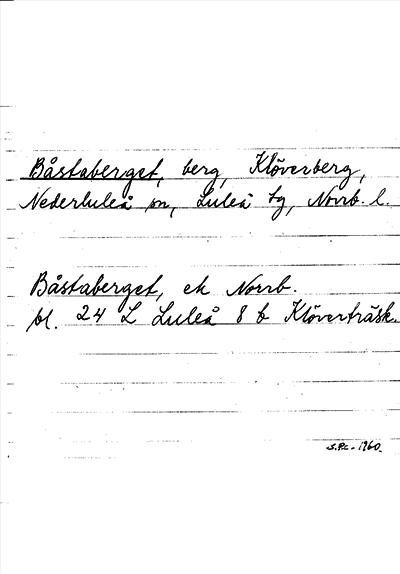 Båstaberget, berg, Klöverberg,
Nederluleå sn, Luleå tg, Norrb. l.
Båstaberget, ek Norrb.
bl. 24 L Luleå 8 b Klöverträsk.
1960.